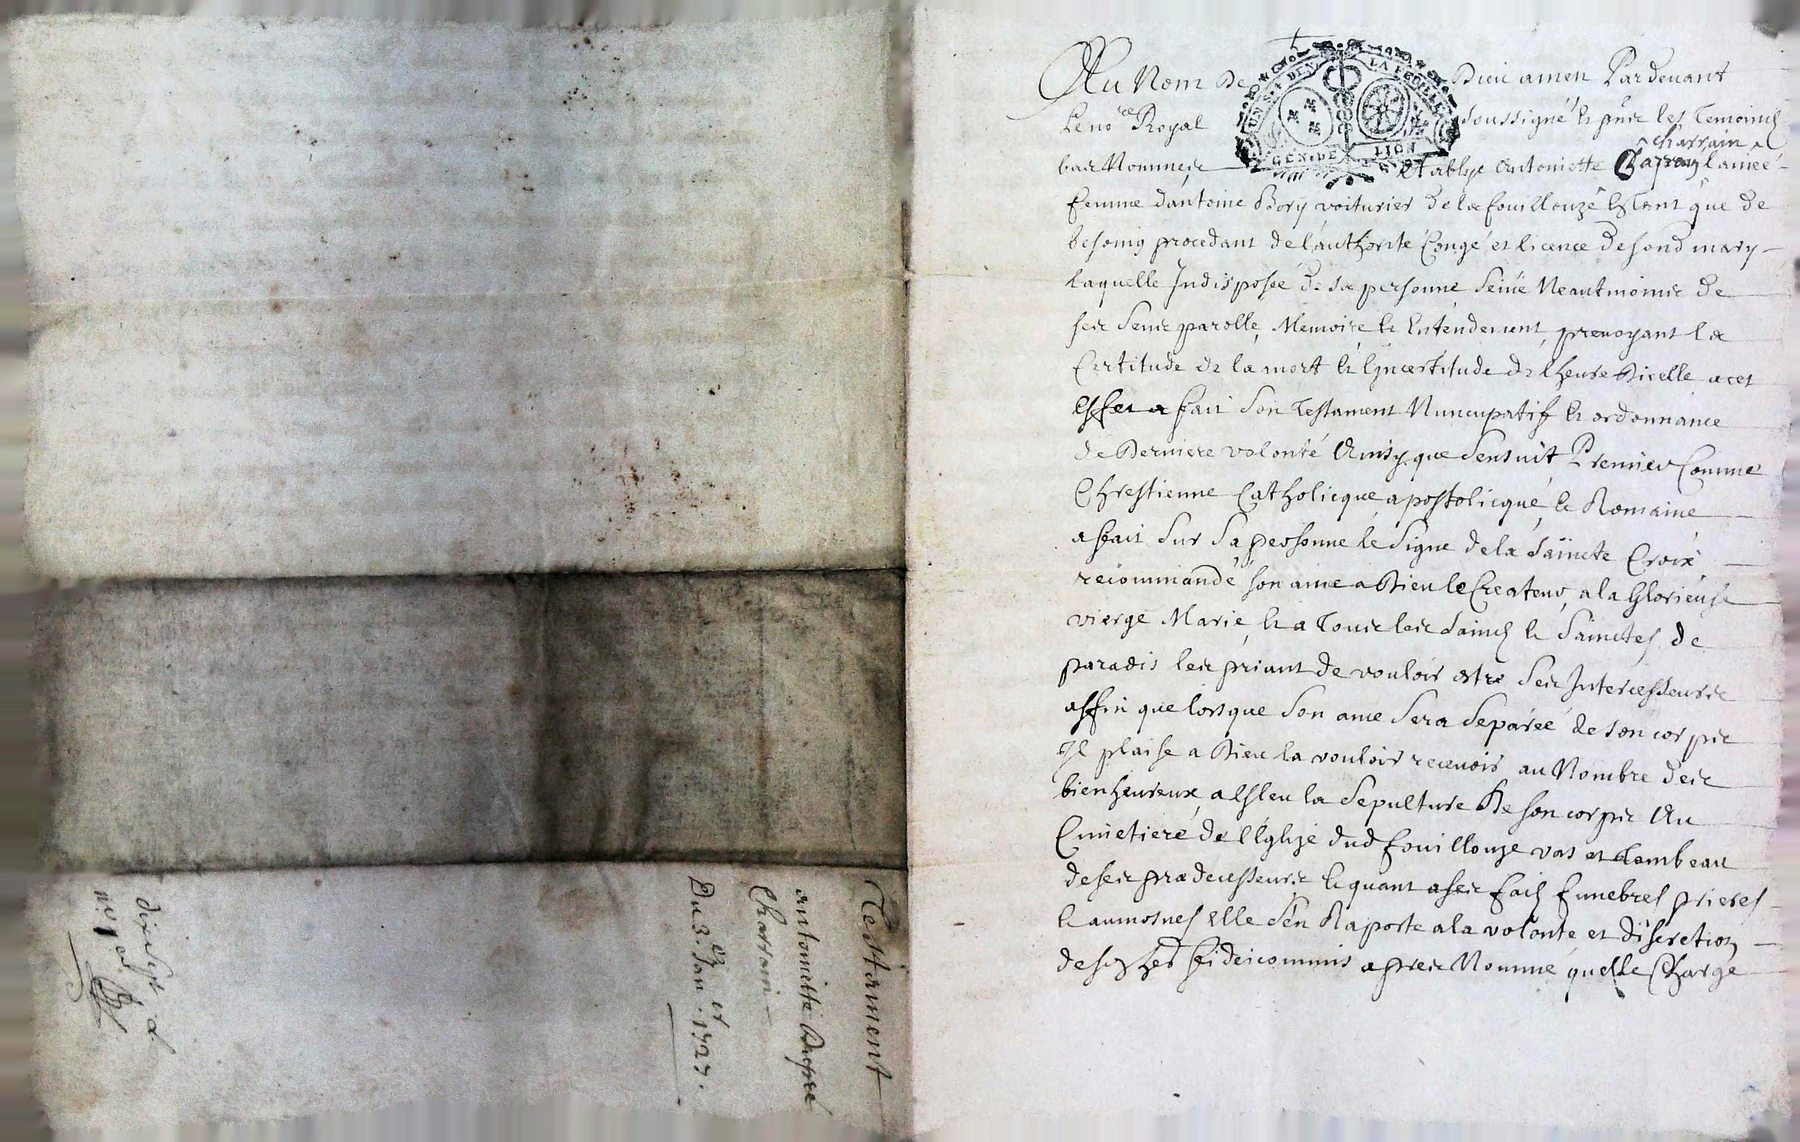 Testament
antoinette
Charrain
Du 3.e Jan.er 1727.
Au Nom De Dieu amen Pardevant
UN S. 4 DEN. LA FEUILLE
GEN. DE LION
Le no.re Royal soussigné & les Temoins
bas Nommés Establye Antoinette charrain
femme dantoine Bory voiturier de la fouillouze Estant que de
besoing procedant de l'authorité Congé et licence de sond mary
Laquelle Indisposée de sa personne seine Neantmoins de
ses sens parolle, Memoire & Entendement, prevoyant la
Certitude de la mort & Lyncertitude de Lheure Dicelle a cet
Effet a fait son Testament Nuncupatif & ordonnance
de Derniere volonté Ainsy que sensuit Premier Comme
Chrestienne Catholicque apostolicque, & Romaine
a fait sur sa personne le signe de la saincte Croix
recommandé son ame a Dieu le Createur, a la Glorieuse
vierge Marie, & a Tous les saincts & sainctes de
paradis les priant de vouloir estre ses Intercesseurs
affin que lorsque son ame sera separée de son corps
Il plaise a Dieu la vouloir recevoir au Nombre des
bienheureux, a Esleu la sepulture De son corps Au
Cimetiere de l'Eglize dud fouillouze vas et Tombeau
de ses predecesseurs & quant a ses faits funebres prieres
& aumosnes Elle s'en Raporte a la volonté et discretion
de son her fideicommis apres Nommé quelle Charge